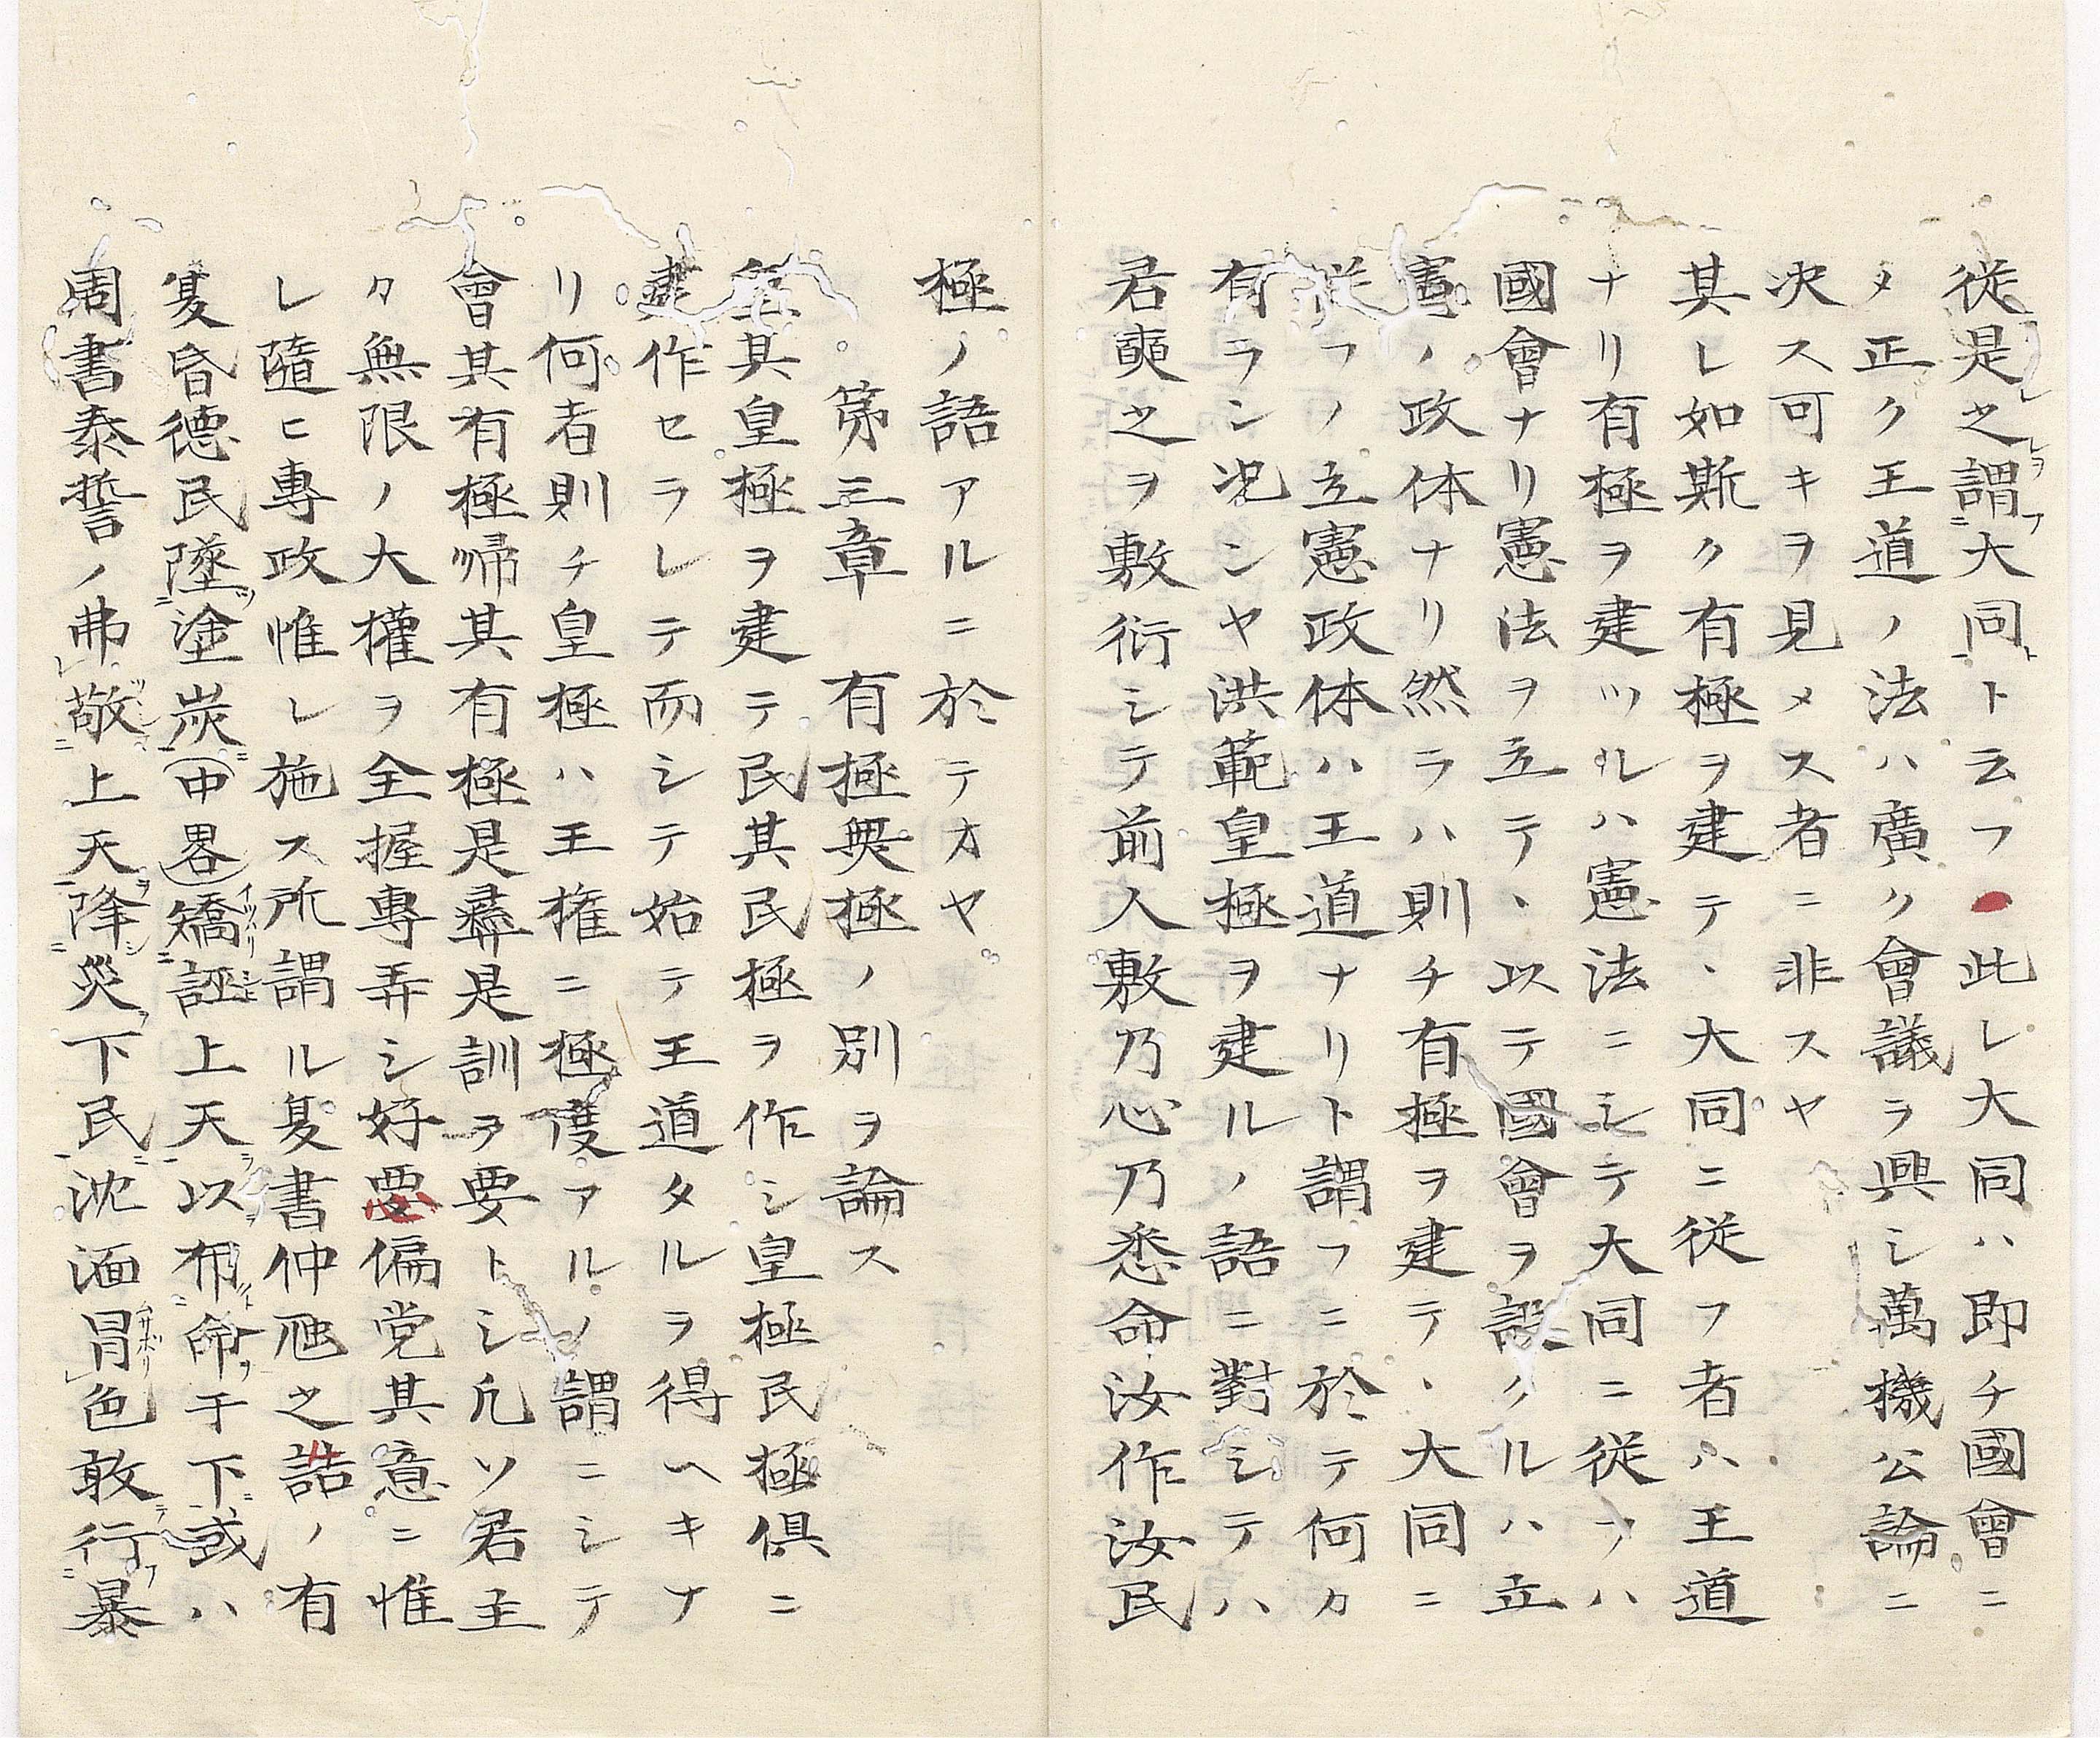 従是之謂大同ト云フ此レ大同ハ即チ國會ニ
メ正ク王道ノ法ハ廣ク會議ヲ興シ萬機公論ニ
决ス可キヲ見メス者ニ非スヤ
其レ如斯ク有極ヲ建テ、大同ニ従フ者ハ王道
ナリ有極ヲ建ツルハ憲法ニシテ大同ニ従フハ
國會ナリ憲法ヲ立テ、以テ國會ヲ設クルハ立
憲ノ政体ナリ然ラハ則チ有極ヲ建テ、大同ニ
従フノ立憲政体ハ王道ナリト謂フニ於テ何カ
有ラン况ンヤ洪範皇極ヲ建ルノ語ニ對シテハ
君奭之ヲ敷衍シテ前人敷乃心乃悉命汝作汝民
極ノ語アルニ於テオヤ
第三章 有極無極ノ別ヲ論ス
皇其皇極ヲ建テ民其民極ヲ作シ皇極民極倶ニ
建作セラレテ而シテ始テ王道タルヲ得ヘキナ
リ何者則チ皇極ハ王権ニ極度アルノ謂ニシテ
會其有極帰其有極是彛是訓ヲ要トシ凢ソ君主
カ無限ノ大權ヲ全握專弄シ好悪偏党其意ニ惟
レ隨ヒ專政惟レ施ス所謂ル夏書仲虺之誥ノ有
夏昏德民墜塗炭(中畧)矯誣上天以布命于下或ハ
周書泰誓ノ弗敬上天降災下民沈湎冒色敢行暴